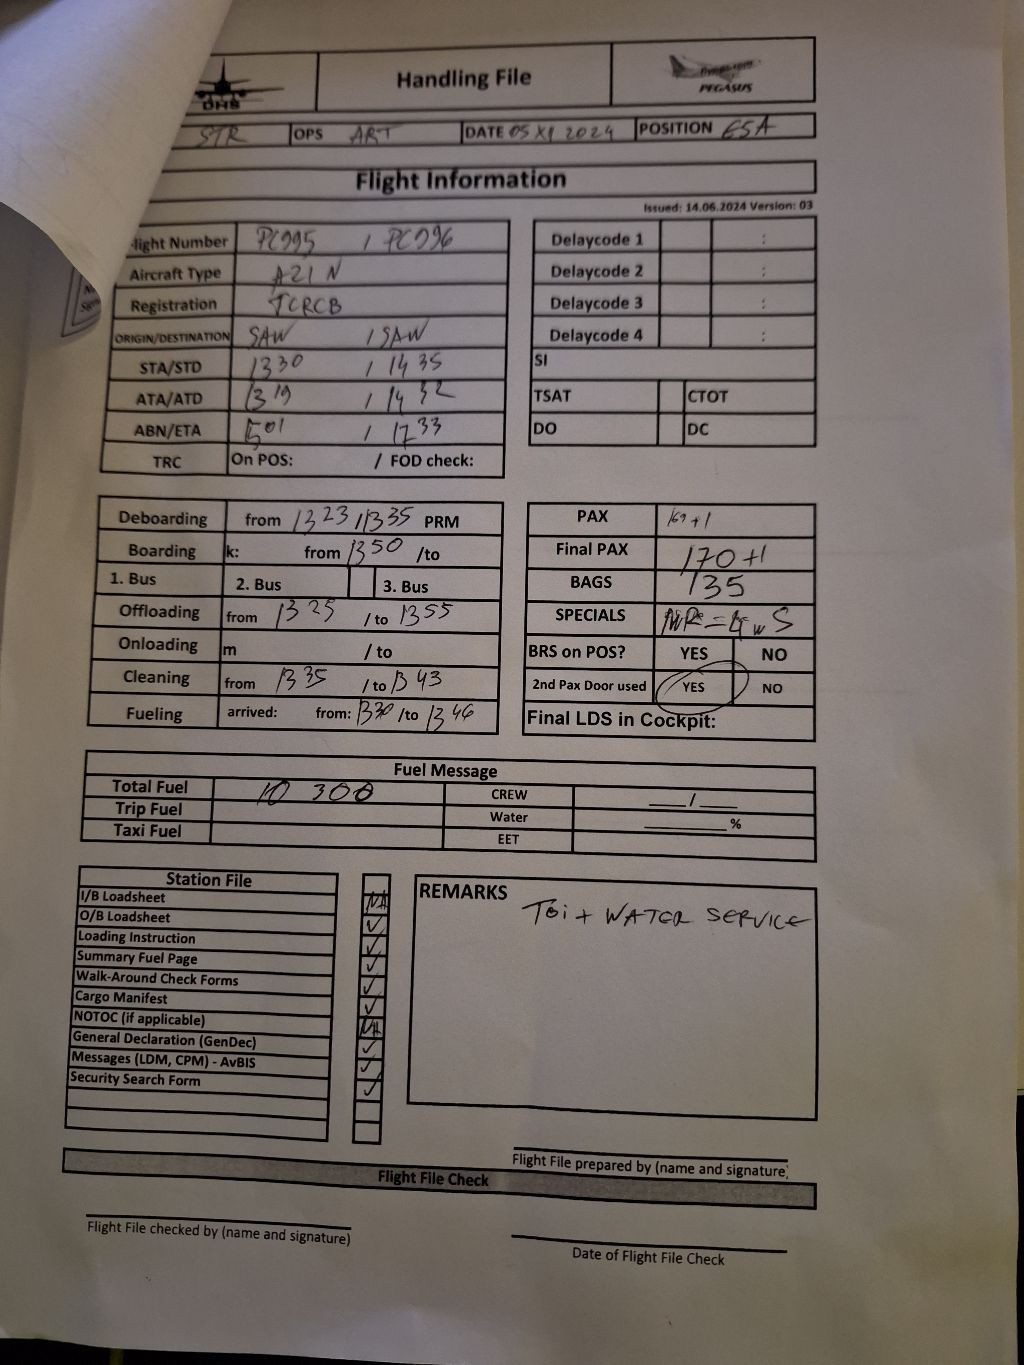 DHS Handling File flypgs.com PEGASUS
STR OPS ART DATE 05 XI 2024 POSITION 65A
Flight Information
Issued: 14.06.2024 Version: 03
light Number PC995 / PC996
Aircraft Type A21N
Registration TCRCB
ORIGIN/DESTINATION SAW / SAW
STA/STD 1330 / 1435
ATA/ATD 1319 / 1432
ABN/ETA 501 / 1733
TRC On POS: / FOD check:
Delaycode 1 :
Delaycode 2 :
Delaycode 3 :
Delaycode 4 :
SI
TSAT CTOT
DO DC
Deboarding from 1323 / 1335 PRM
Boarding k: from 1350 /to
1. Bus 2. Bus 3. Bus
Offloading from 1325 / to 1355
Onloading m / to
Cleaning from 1335 / to 1343
Fueling arrived: from: 1330 /to 1346
PAX 169+1
Final PAX 170+1
BAGS 135
SPECIALS
BRS on POS? YES NO
2nd Pax Door used YES NO
Final LDS in Cockpit:
Fuel Message
Total Fuel 10 300 CREW ___/___
Trip Fuel Water ______%
Taxi Fuel EET
Station File
I/B Loadsheet NA
O/B Loadsheet ✓
Loading Instruction ✓
Summary Fuel Page ✓
Walk-Around Check Forms ✓
Cargo Manifest ✓
NOTOC (if applicable) NA
General Declaration (GenDec) ✓
Messages (LDM, CPM) - AvBIS ✓
Security Search Form ✓
REMARKS
+ WATER SERVICE
Flight File prepared by (name and signature)
Flight File Check
Flight File checked by (name and signature)
Date of Flight File Check